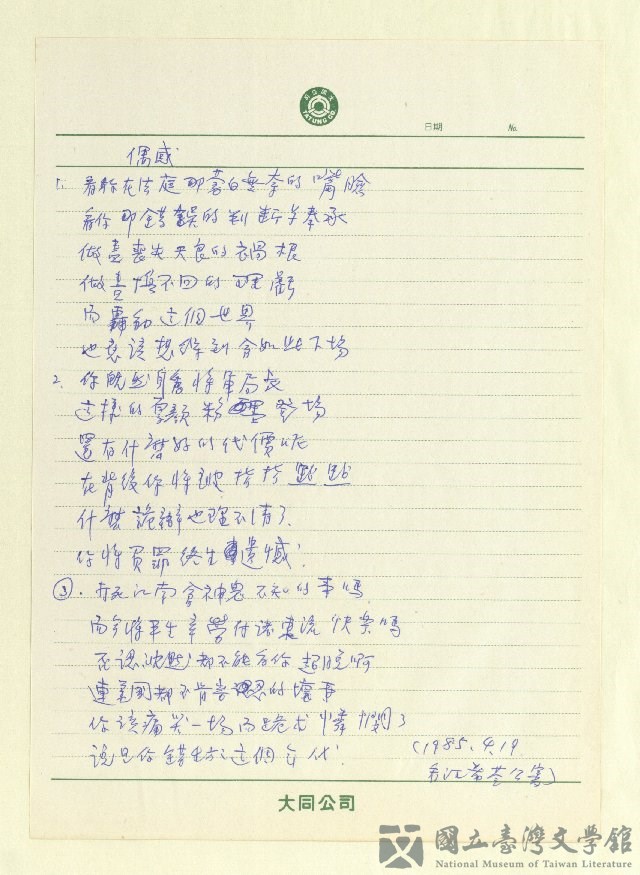 TATUNG CO.
日期 No.
偶感
1. 看你在法庭那蒼白無奈的嘴臉
看你那錯誤的判斷与奉承
做盡喪失天良的禍根
做盡填不回的理虧
而轟動這個世界
也應該想像到會如此下場
2. 你既然身為將軍局長
這樣的厚顏粉墨登場
還有什麼好的代價呢
在背後你將被指指點點
什麼詭辯也理不清了
你將負罪終生遺憾
3. 江南會神鬼不知的事嗎
而今將畢生辛勞付諸東流快樂嗎
否認沈默都不能為你超脫啊
連美國都不肯的壞事
你該痛哭一場而跪求懺悔了
說是你錯生於這個年代
(1985.4.19
大同公司
國立臺灣文學館
National Museum of Taiwan Literature